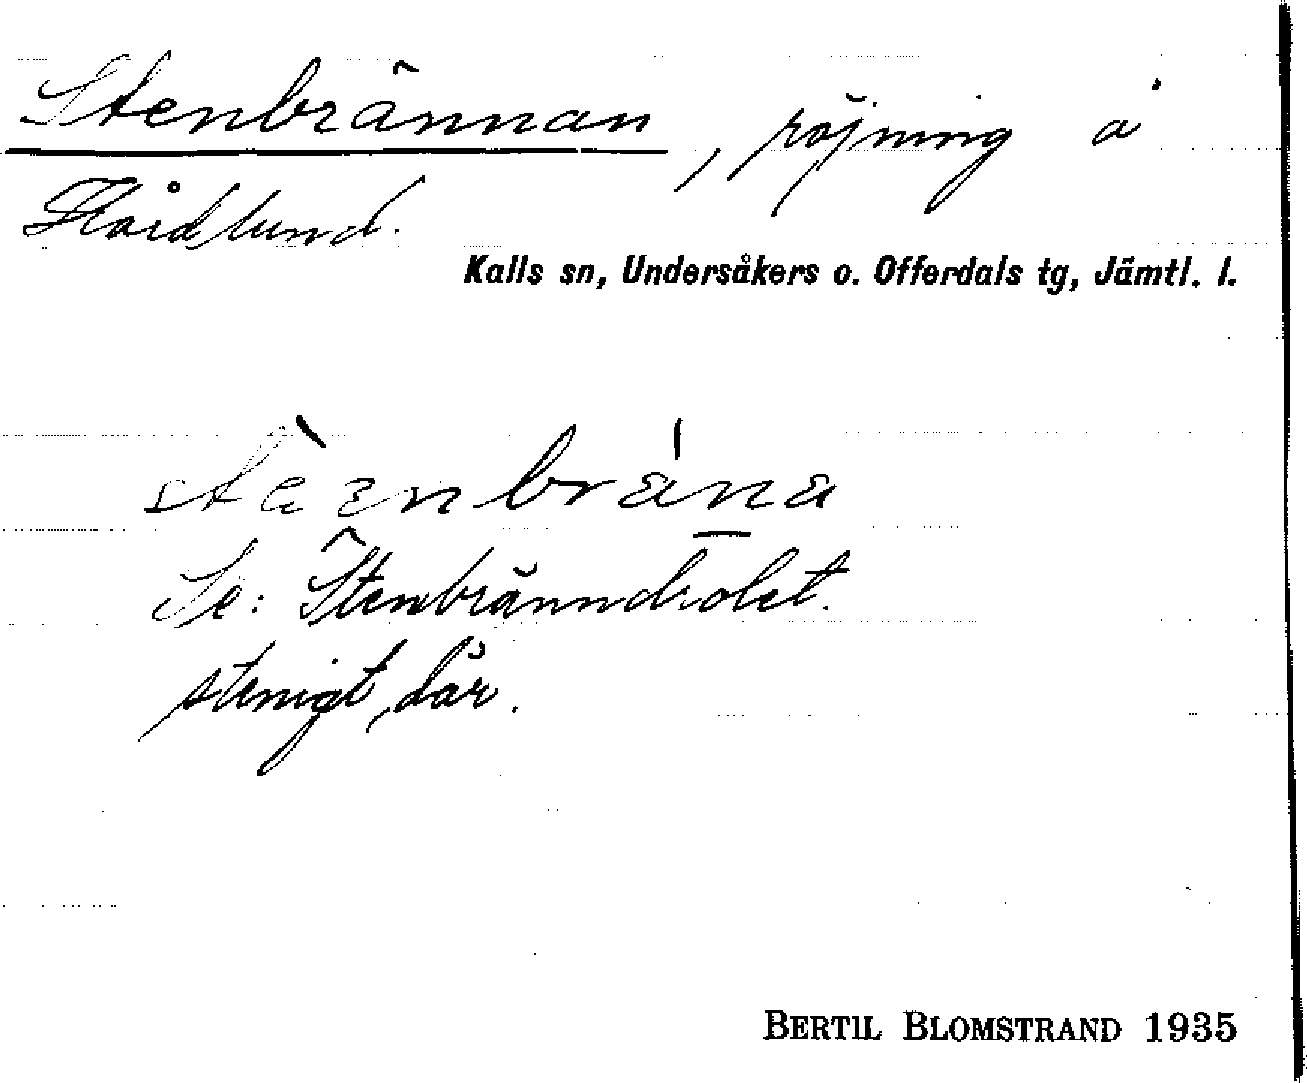 Stenbrännan, röjning å
Hårdlund.
Kalls sn, Undersåkers o. Offerdals tg, Jämtl. l.
Se: Stenbränndrolet.
stenigt där.
BERTIL BLOMSTRAND 1935